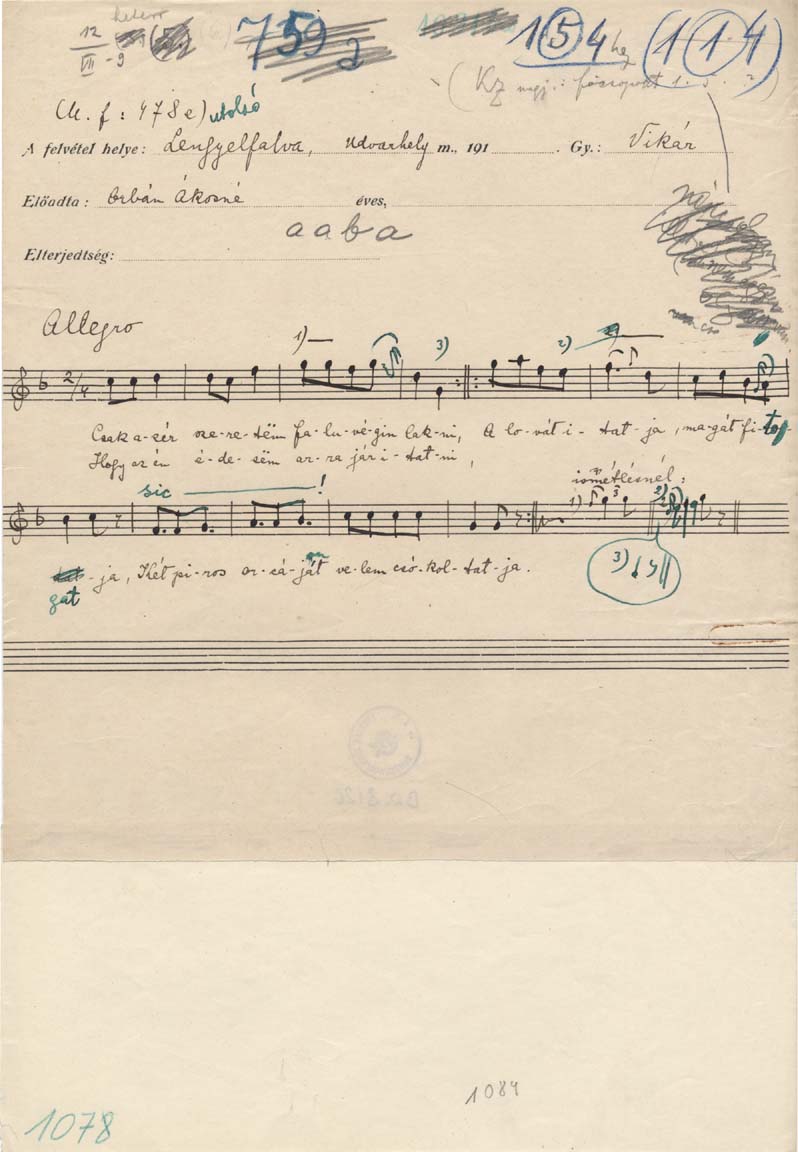 heterr
12
VII -9
759
154 (114)
(Kz megj.: főcsoport 1.
M. f: 478e) utolsó
A felvétel helye: Lengyelfalva, Udvarhely m., 191 . Gy.: Vikár
Előadta: Orbán Ákosné éves,
aaba
Elterjedtség:
Allegro
1) 3) 2)
2/4
Csak a-zér sze-re-tëm fa-lu-vé-gin lak-ni, A lo-vát i-tat-ja, ma-gát fi-tog
Hogy az én é-de-sëm ar-ra jár i-tat-ni,
ismétlésnél:
sic !
1) 3 2)
3)
-ja, Két pi-ros or-cá-ját ve-lem csó-kol-tat-ja.
gat
1084
1078